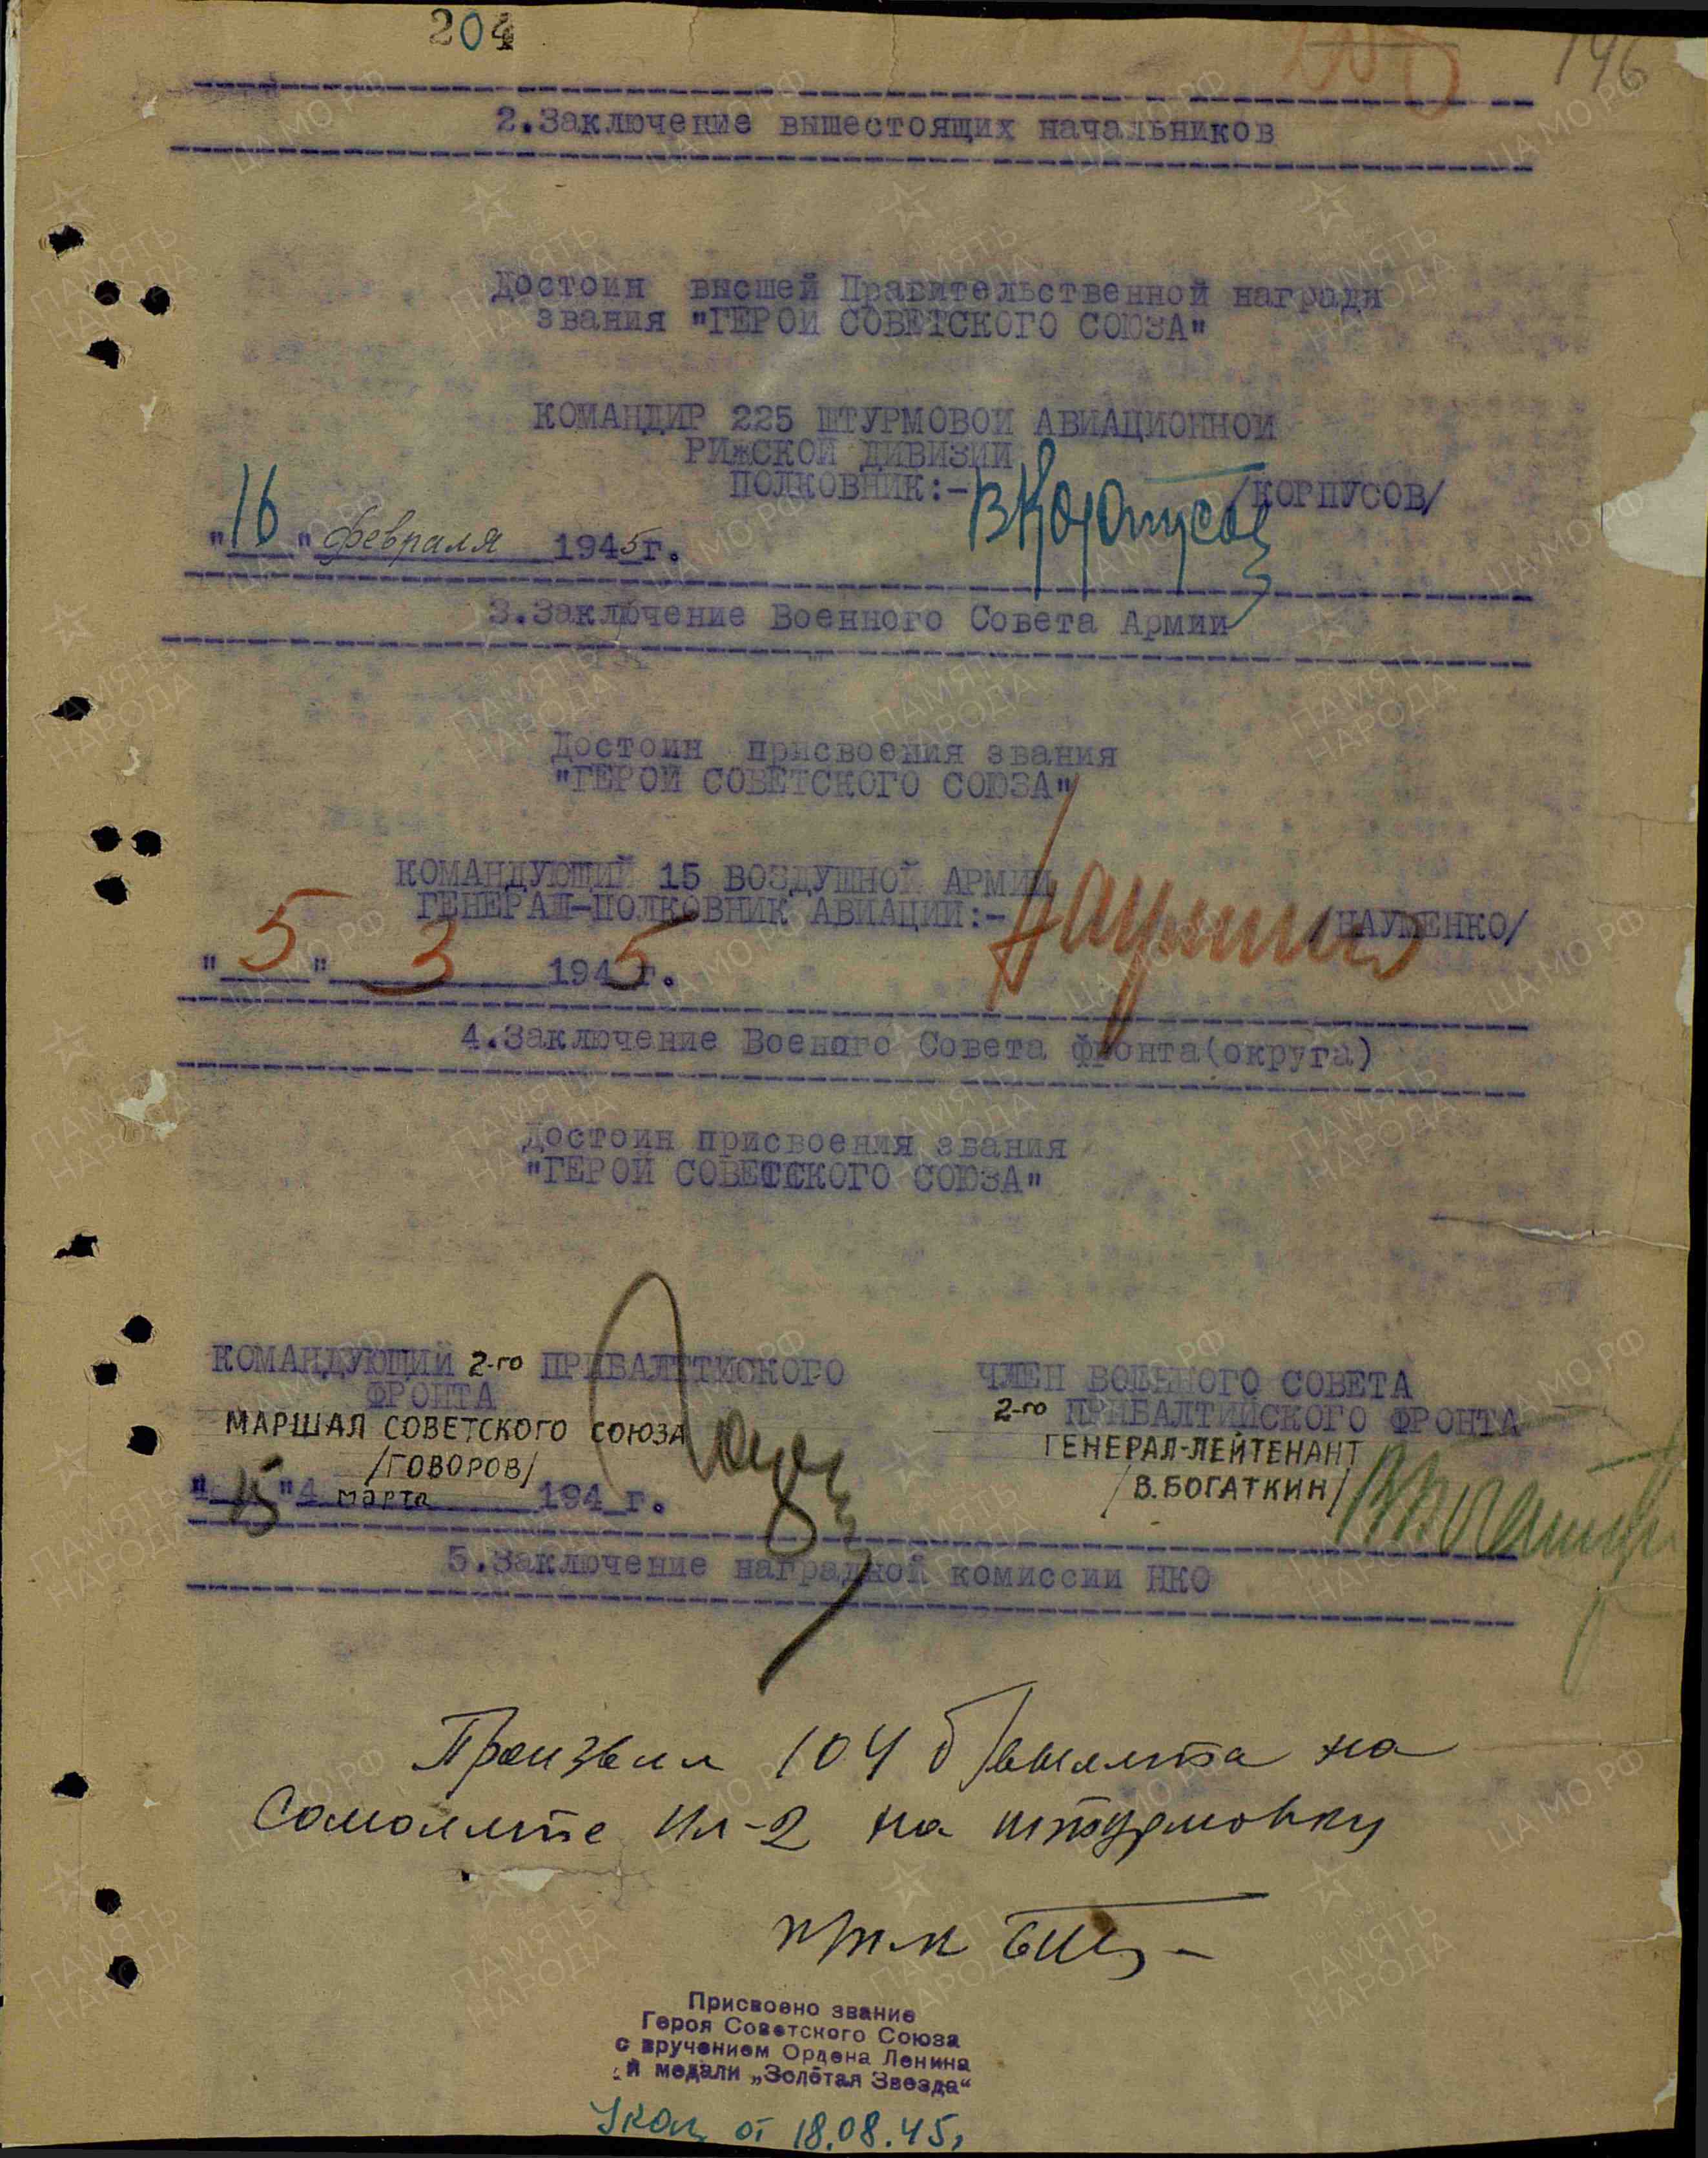 204
196
2.Заключение вышестоящих начальников
Достоин высшей Правительственной награды
звания "ГЕРОЙ СОВЕТСКОГО СОЮЗА"
КОМАНДИР 225 ШТУРМОВОЙ АВИАЦИОННОЙ
РИЖСКОЙ ДИВИЗИИ
ПОЛКОВНИК:- ВКорпусов /КОРПУСОВ/
"16" февраля 1945г.
3.Заключение Военного Совета Армии
Достоин присвоения звания
"ГЕРОЙ СОВЕТСКОГО СОЮЗА"
КОМАНДУЮЩИЙ 15 ВОЗДУШНОЙ АРМИИ
ГЕНЕРАЛ-ПОЛКОВНИК АВИАЦИИ:- Науменко /НАУМЕНКО/
"5" 3 1945г.
4.Заключение Военого Совета фронта(округа)
Достоин присвоения звания
"ГЕРОЙ СОВЕТСКОГО СОЮЗА"
КОМАНДУЮЩИЙ 2-го ПРИБАЛТИЙСКОГО
ФРОНТА
МАРШАЛ СОВЕТСКОГО СОЮЗА
/ГОВОРОВ/
"15" марта 194_г.
ЧЛЕН ВОЕННОГО СОВЕТА
2-го ПРИБАЛТИЙСКОГО ФРОНТА
ГЕНЕРАЛ-ЛЕЙТЕНАНТ
/В.БОГАТКИН/
5.Заключение наградной комиссии НКО
Произвел 104 б/вылета на
Самолете Ил-2 на штурмовку
Присвоено звание
Героя Советского Союза
с вручением Ордена Ленина
и медали „Золотая Звезда“
Указ от 18.08.45,
ПАМЯТЬ НАРОДА
ЦА МО РФ